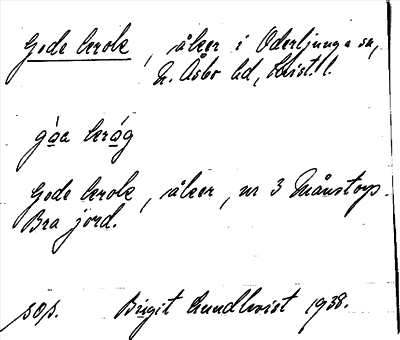 Gode krok, åker i Oderljunga sn,
N. Åsbo hd, Krist. l.
gåa kråg
Gode krok, åker, nr 3 Månstorp.
Bra jord.
sos. Birgit Lundkvist 1938.